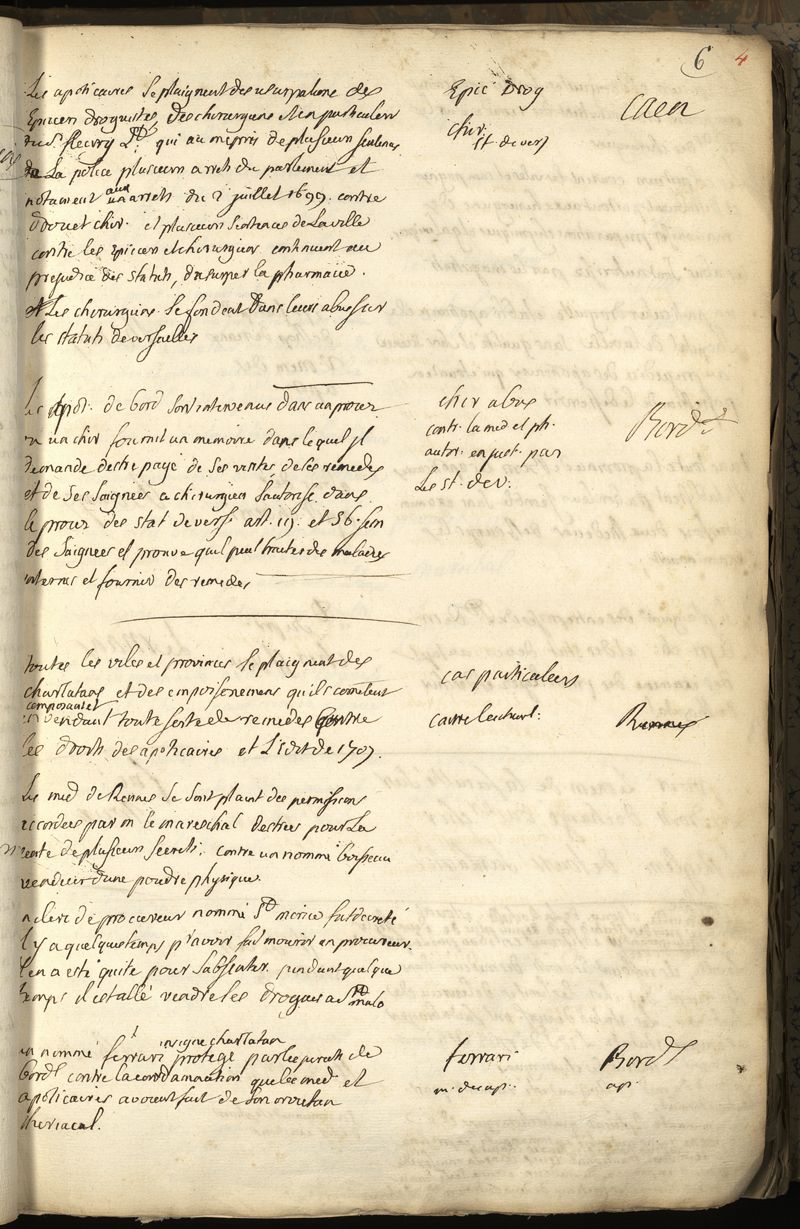 6 4
Les apoticaires se plaignent des usurpations des
Epiciers droguistes, des chirurgiens et en particulier
du Sr. fleury qui au mepris de plusieurs sentences
de La police plusieurs arrets du parlement et
notament aux arrets du 2 juillet 1699. contre
chir. et plusieurs sentences de La ville
contre les Epiciers et chirurgiens continuent au
prejudice des statuts, d'usurper la pharmacie.
Les chirurgiens se fondent dans leurs abus sur
les statuts de versailles
Epic Drog
chir.
st. de vers
Caen
Les apot. de bord sont intervenus dans un procez
ou un chir fournit un memoire dans lequel il
demande d'estre payé de ses visites de ses remedes
et de ses saignées ce chirurgien s'autorise dans
le procez des stat de vers. art. et 56. sur
des saignees et prouve quil peut traiter des malades
internes et fournir des remedes
chir abus
contr. la med et ph.
autor. en just. par
Les st. de v.
Bord
toutes les villes et provinces se plaignent des
charlatans et des empoisonemens qu'ils cometent
composant et
en vendant toute sorte de remedes contre
les droits des apoticaires et L'edit de 1707.
cas particuliers
contre les charl.
Rennes
Les med de Rennes se sont plaint des permissions
accordées par m le mareschal d'estrées pour La
vente de plusieurs secrets, contre un nommé
vendeur d'une poudre physique.
un clerc de procureur nommé fut decreté
il y a quelque temps pr avoir fait mourir un procureur.
il en a esté quite pour s'absenter pendant quelque
temps il est allé vendre les drogues a St malo
un nommé ferrari insigne charlatan protegé par le de
Bord contre la condamnation que les med et
apoticaires avoient fait de son orvietan
theriacal.
ferrari
Bord
ap.